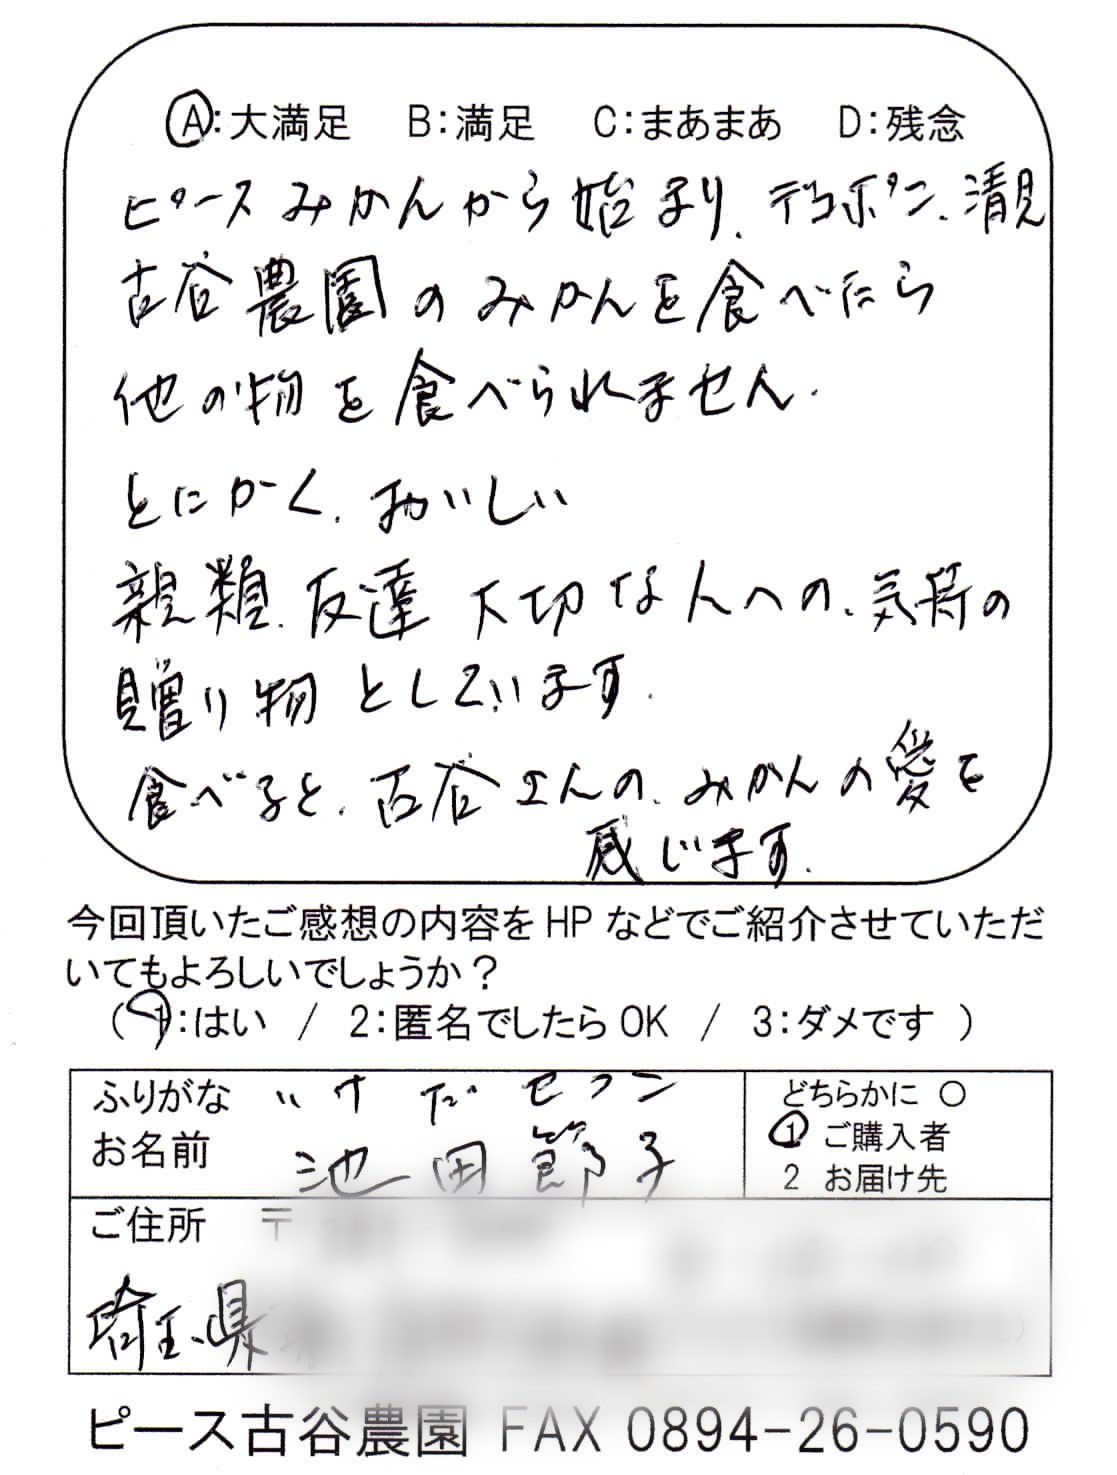 A:大満足 B:満足 C:まあまあ D:残念
ピースみかんから始まり、デコポン、清見
古谷農園のみかんを食べたら
他の物を食べられません.
とにかく、おいしい
親類、友達 大切な人への、気持の
贈り物としています.
食べると、古谷さんの、みかんの愛を
感じます.
今回頂いたご感想の内容をHPなどでご紹介させていただ
いてもよろしいでしょうか？
（ 1:はい / 2:匿名でしたらOK / 3:ダメです ）
ふりがな いけだ セツコ
お名前 池田 節子
どちらかに ○
1 ご購入者
2 お届け先
ご住所 〒
埼玉県
ピース古谷農園 FAX 0894-26-0590